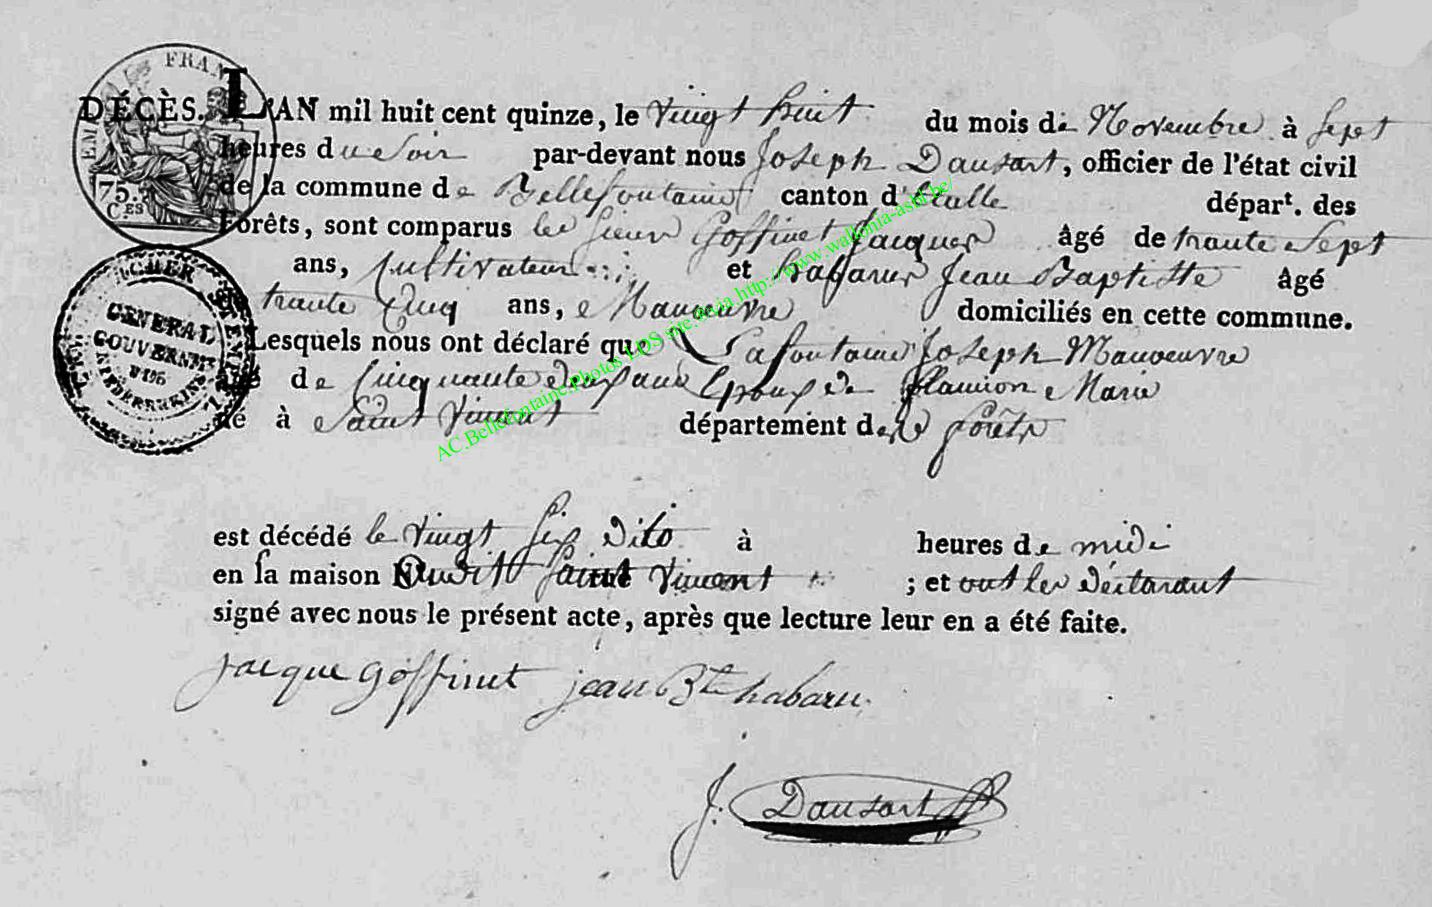 FRAN
EM
75.
CES
ACHER STEMPEL
GENERAL
GOUVERNMT
DÉCÈS. L'AN mil huit cent quinze, le Vingt huit du mois de Novembre à Sept
heures du Soir par-devant nous Joseph Dausart, officier de l'état civil
de la commune de Bellefontaine canton d'Etalle départ. des
Forêts, sont comparus les Sieur Goffinet Jacques âgé de trante Sept
ans, Cultivateur et habarus Jean Baptiste âgé
de trante Cinq ans, Manoeuvre domiciliés en cette commune.
Lesquels nous ont déclaré que Lafontaine Joseph Manoeuvre
âgé de Cinquante deux ans Epoux de flamion Marie
né à Saint Vincent département des forêts
est décédé le Vingt Six dito à heures de midi
en sa maison Audit Saint Vincent ; et ont les déclarant
signé avec nous le présent acte, après que lecture leur en a été faite.
jacque goffinet jean Bte habaru
J. Dausart
AC.Bellefontaine.Photos LDS site asia http://www.wallonia-asbl.be/